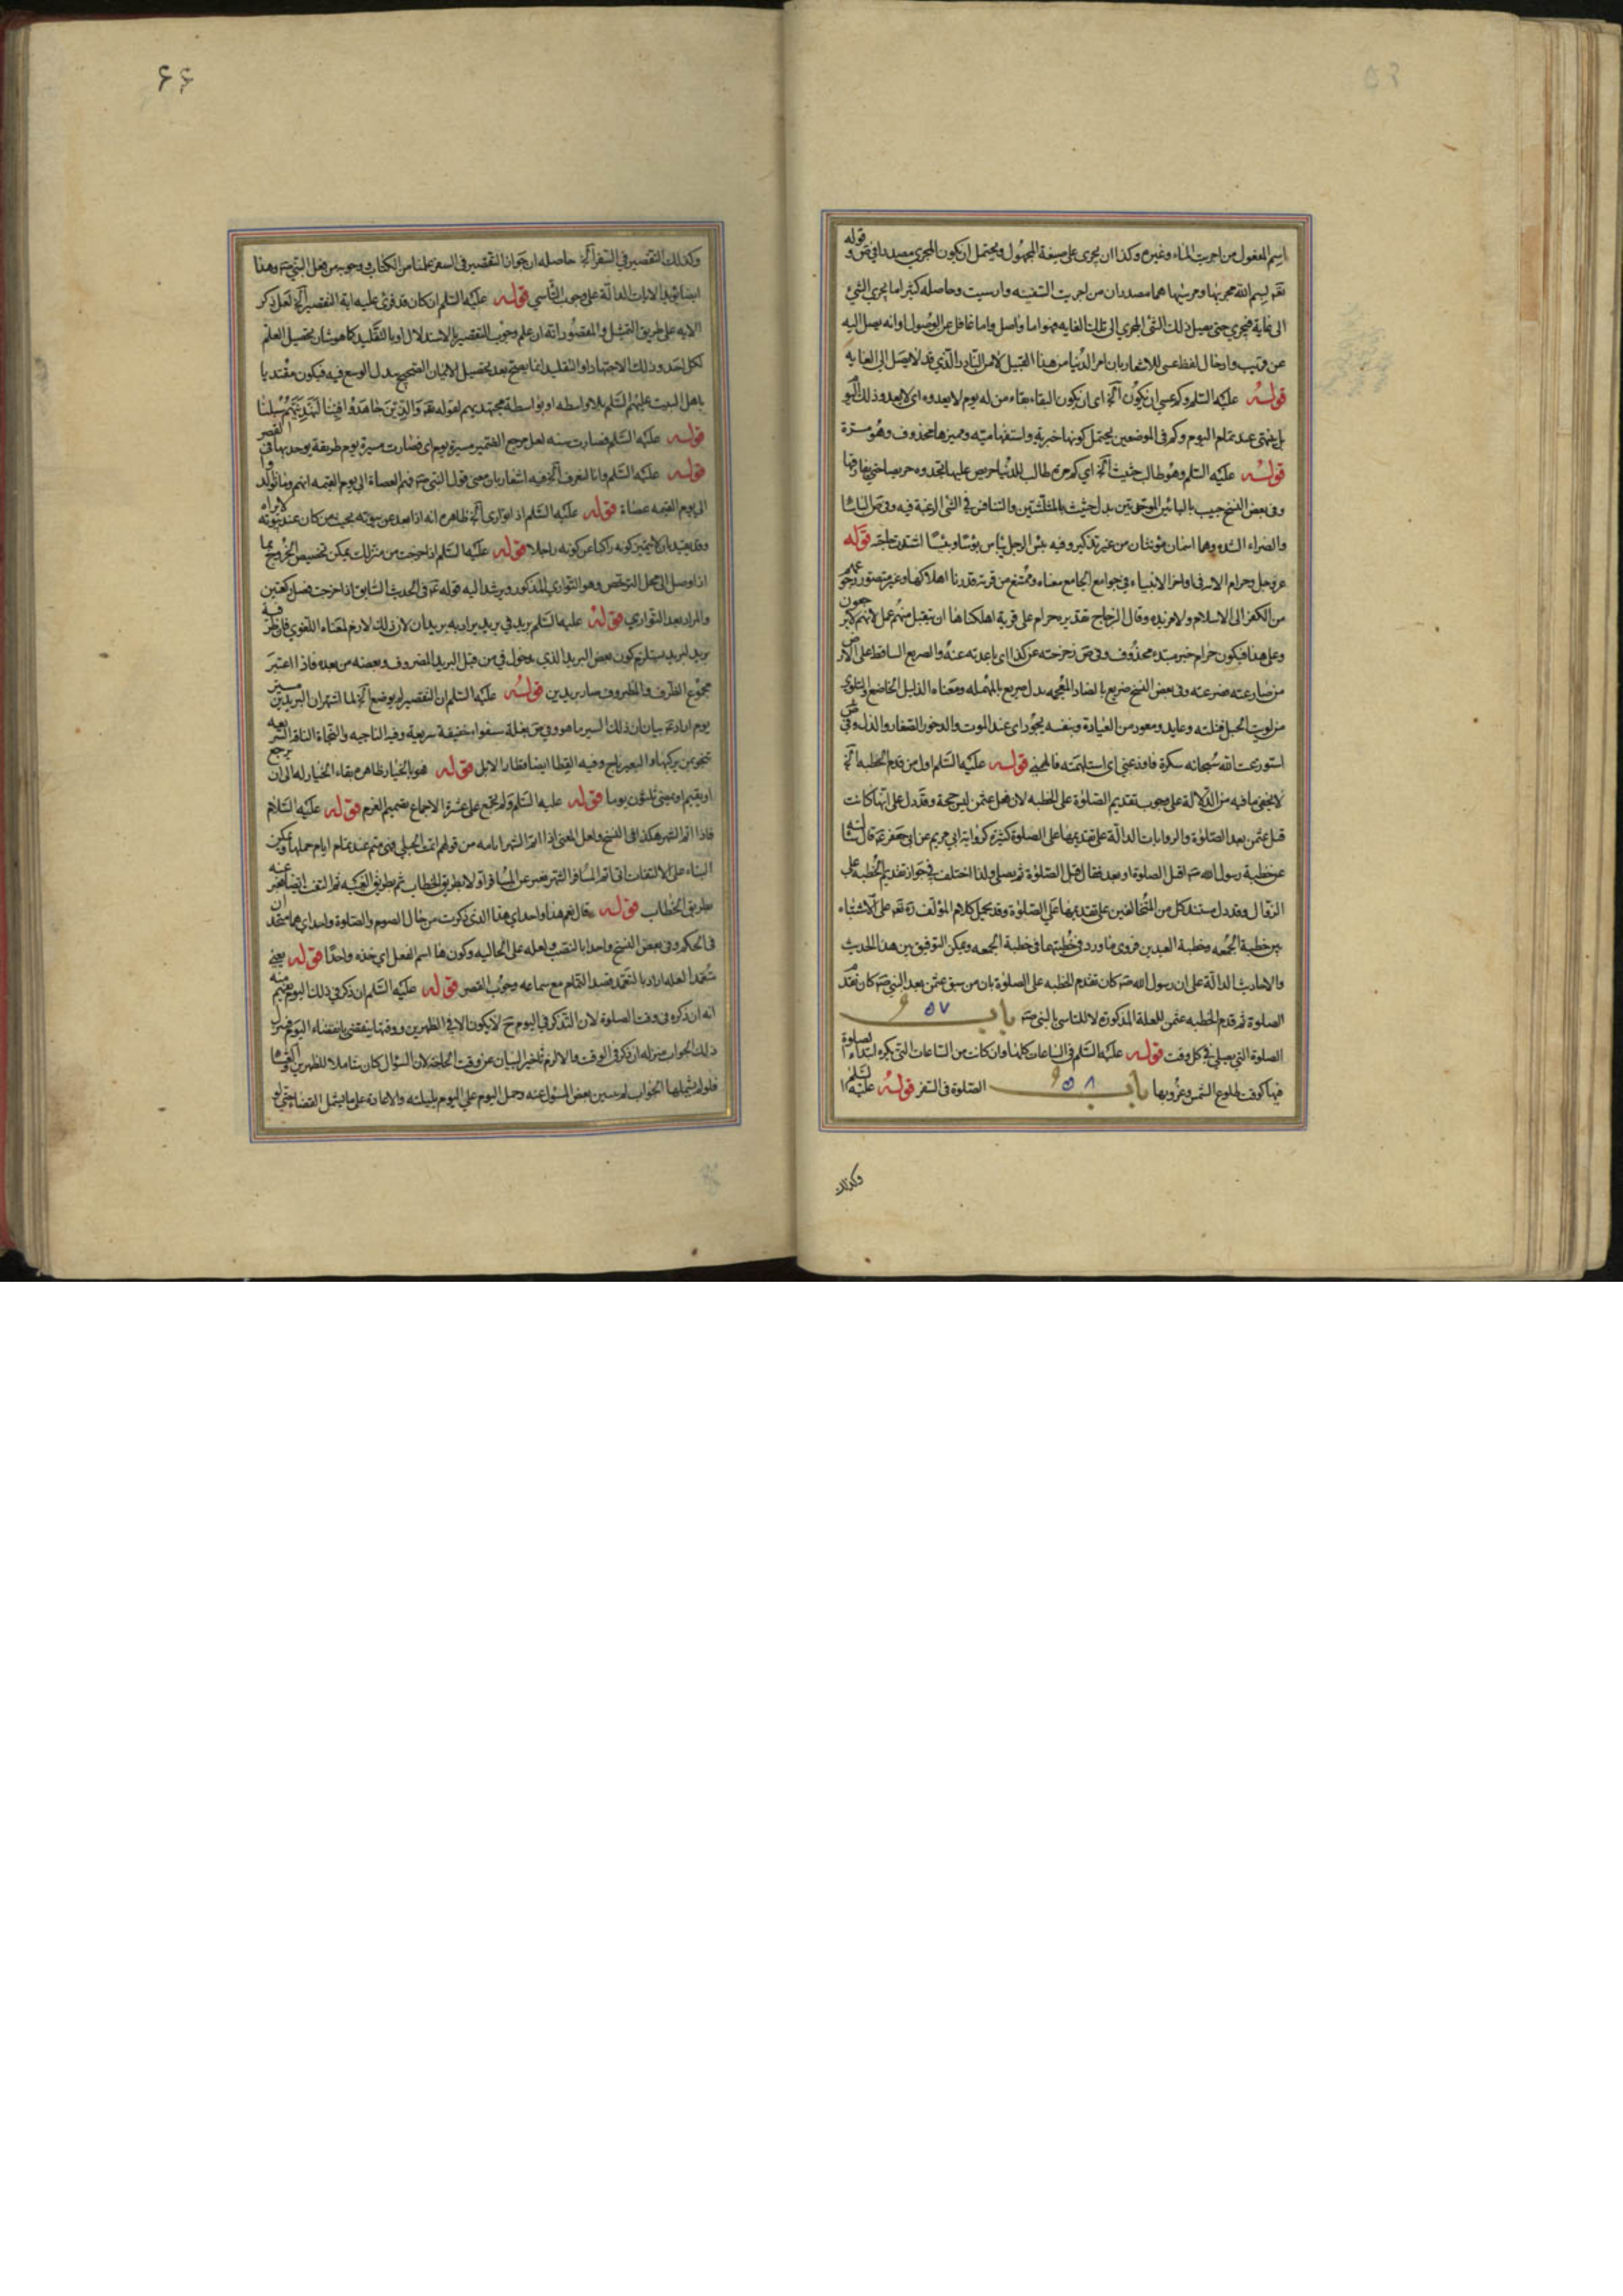 اسم المفعول من اجريت الماء وغيره وكذا ان يجرى على صيغة المجهول ويحتمل ان يكون المجرى مصدرا في ص وقوله
تعالى بسم الله مجريها ومرسيها هما مصدران من اجريت السفينه وارسيت وحاصله كثيرا ما يجرى الشئ
الى غاية فيجرى حتى يصل ذلك الشئ المجرى الى تلك الغايه فهو اما واصل واما غافل عن الوصول وانه يصل اليه
عن قريب وادخال لفظ عسى للاشعار بان امر الدنيا من هذا القبيل لا من النادر الذي قد لا يصل الى الغايه
قوله عليه السلم وكم عسى ان يكون آلخ اى ان يكون البقاء بقاء من له يوم لا يعدوه اى لا يعدو ذلك اليوم
بل ينتهى عند تمام اليوم وكم في الموضعين يحتمل كونها خبرية واستفهاميه ومميزها محذوف وهو مرة
قوله عليه السلم وطالب حثيث آلخ اى كم من طالب للدنيا حريص عليها تحدوه حريصا حتى يفارقها
وفى بعض النسخ حبيب بالبائين الموحدتين بدل حثيث بالمثلثتين والتنافس في الشى الرغبة فيه وفى ص البأسا
والضراء الشده وهما اسمان مؤنثان من غير تذكير وفيه بئس الرجل يبأس بؤسا وبئسا اشتدت حاجته قوله
عز وجل وحرام الايه في اواخر الانبياء وفي جوامع الجامع معناه وممتنع من قرية قدرنا اهلاكها وغير متصور رجوعهم
من الكفر الى الاسلام ولا مزيده وقال الزجاج تقديره حرام على قرية اهلكناها ان يتقبل منهم عمل لانهم لا يرجعون
وعلى هذا فيكون حرام خبر مبتدء محذوف وفى ص زحزحته عن كذا اى باعدته عنه والصريع الساقط على الارض
من صارعته فصرعته وفى بعض النسخ ضريع بالضاد المعجمه بدل صريع بالمهمله ومعناه الذليل الخاضع ويتلوى
من لويت الحبل فتلته وعايد ومعود من العيادة وبنفسه يجود اى عند الموت والدخور الصغار والذل وفي ص
استوزعت الله سبحانه شكره فاوزعني اى استلهمته فالهمني قوله عليه السلم اول من قدم الخطبه آلخ
لا يخفى ما فيه من الدلالة على وجوب تقديم الصلوة على الخطبه لان فعل عثمن ليس حجة وقد دل على انها كانت
قبل عثمن بعد الصلوة والروايات الدالة على تقديمها على الصلوة كثيرة كرواية ابي مريم عن ابي جعفر ع قال سالته
عن خطبة رسول الله ص اقبل الصلوة او بعد فقال قبل الصلوة ثم يصلى ولذا اختلف في جواز تقديم الخطبه على
الزوال وقد دل مستند كل من المخالفين على تقديمها على الصلوة وقد يحمل كلام المؤلف ره تعالى على الاشتباه
بين خطبة الجمعه وخطبة العيدين فروى ما ورد في خطبتهما في خطبة الجمعه ويمكن التوفيق بين هذا الحديث
والاحاديث الدالة على ان رسول الله ص كان تقدم الخطبه على الصلوة بان من سبق عثمن بعد النبي ص كان تقدم
الصلوة ثم قدم الخطبه عثمن للعلة المذكورة لا للتاسى بالنبى ص باب ٥٧
الصلوة التي يصلى في كل وقت قوله عليه السلم في الساعات كلها وان كانت من الساعات التى يكره ابتداء الصلوة
فيها كوقت طلوع الشمس وغروبها باب ٥٨ الصلوة في السفر قوله عليه السلم
وكذلك
۶۶
وكذلك التقصير في السفر آلخ حاصله ان جواز التقصير في السفر علمنا من الكتاب ووجوبه من فعل النبى ص وهذا
ايضا يؤيد الايات الدالة على وجوب التاسي قوله عليه السلم ان كان قد قرئ عليه اية التقصير آلخ لعل ذكر
الايه على طريق التمثيل والمقصود انه ان علم وجوب التقصير بالاستدلال او بالتقليد كما هو شان تحصيل العلم
لكل احد وذلك الاجتهاد او التقليد انما يصح بعد تحصيل الايمان الصحيح ببذل الوسع فيه فيكون مقتديا
باهل البيت عليهم السلم بلا واسطه او بواسطة مجتهد يهم لقوله تعالى والذين جاهدوا فينا لنهدينهم سبلنا
قوله عليه السلم فصارت سنه لعل مرجع الضمير مسيرة يوم اى فصارت مسيرة يوم طريقة يوجد بها القصر
قوله عليه السلم وانا لنعرف آلخ فيه اشعار بان معنى قول النبى ص فهم العصاة الى يوم القيمه انهم وما تولد
الى يوم القيمه عصاة قوله عليه السلم اذا توارى آلخ ظاهره انه اذا بعد عن بيوته بحيث من كان عند بيوته لا يراه
وقد يعتبر ان لا يتميز كونه راكبا عن كونه راجلا قوله عليه السلم اذا خرجت من منزلك يمكن تخصيص الخروج بما
اذا وصل الى محل الترخص وهو التوارى المذكور ويرشد اليه قوله ع في الحديث السابق اذا خرجت فصل ركعتين
والمراد بعد التوارى قوله عليه السلم بريد في بريد يراد به بريدان لان ذلك لازم لمعناه اللغوي فان ظرفية
بريد لبريد يستلزم كون بعض البريد الذي مدخول في من قبل البريد المظروف وبعضه من بعده فاذا اعتبر
مجموع الظرف والمظروف صار بريدين قوله عليه السلم ان التقصير لم يوضع آلخ لما اشتهر ان البريدين مسير
يوم اراد ع بيان ان ذلك السير ما هو وفي ص بغلة سفوا خفيفة سريعة وفيه الناجيه والنجاة الناقة السريعه
تنجو بمن يركبها والبعير ناج وفيه القطا ايضا قطار الابل قوله فهو بالخيار ظاهره بقاء الخيار له الى ان يرجع
او يقيم او يمضى ثلثون يوما قوله عليه السلم ولم يجمع على عشرة الاجماع تصميم العزم قوله عليه السلام
فاذا اتم الشهر هكذا في النسخ ولعل المعنى اذا اتم الشهر ايامه من قولهم اتمت الحبلى فهى متم عند تمام ايام حملها ويمكن
البناء على الالتفات اى اتم المسافر الشهر يعبر عن المسافر اولا بطريق الخطاب ثم بطريق الغيبه ثم التفت ايضا فعبر عنه
بطريق الخطاب قوله قال نعم هذا واحد اى هذا الذى ذكرت من حال الصوم والصلوة واحد اى هما متحدان
فى الحكم وفى بعض النسخ واحدا بالنصب ولعله على الحاليه وكون ها اسم الفعل اى خذه واحدا قوله يعنى
متعمدا لعله اراد بالتعمد قصد التمام مع سماعه وجوب القصر قوله عليه السلم ان ذكر في ذلك اليوم يفهم منه
انه ان ذكره فى وقت الصلوة لان التذكر في اليوم ح لا يكون الا في الظهرين ووقتها ينقضى بانقضاء اليوم فنزل
ذلك الجواب منزله ان ذكر في الوقت والا لزم تاخير البيان عن وقت الحاجة لان السؤال كان شاملا للظهرين والعشا
فلو لم يشملها الجواب لم يبين بعض المسؤل عنه وحمل اليوم على اليوم بليلته والاعادة على ما يشمل القضا حتى لو